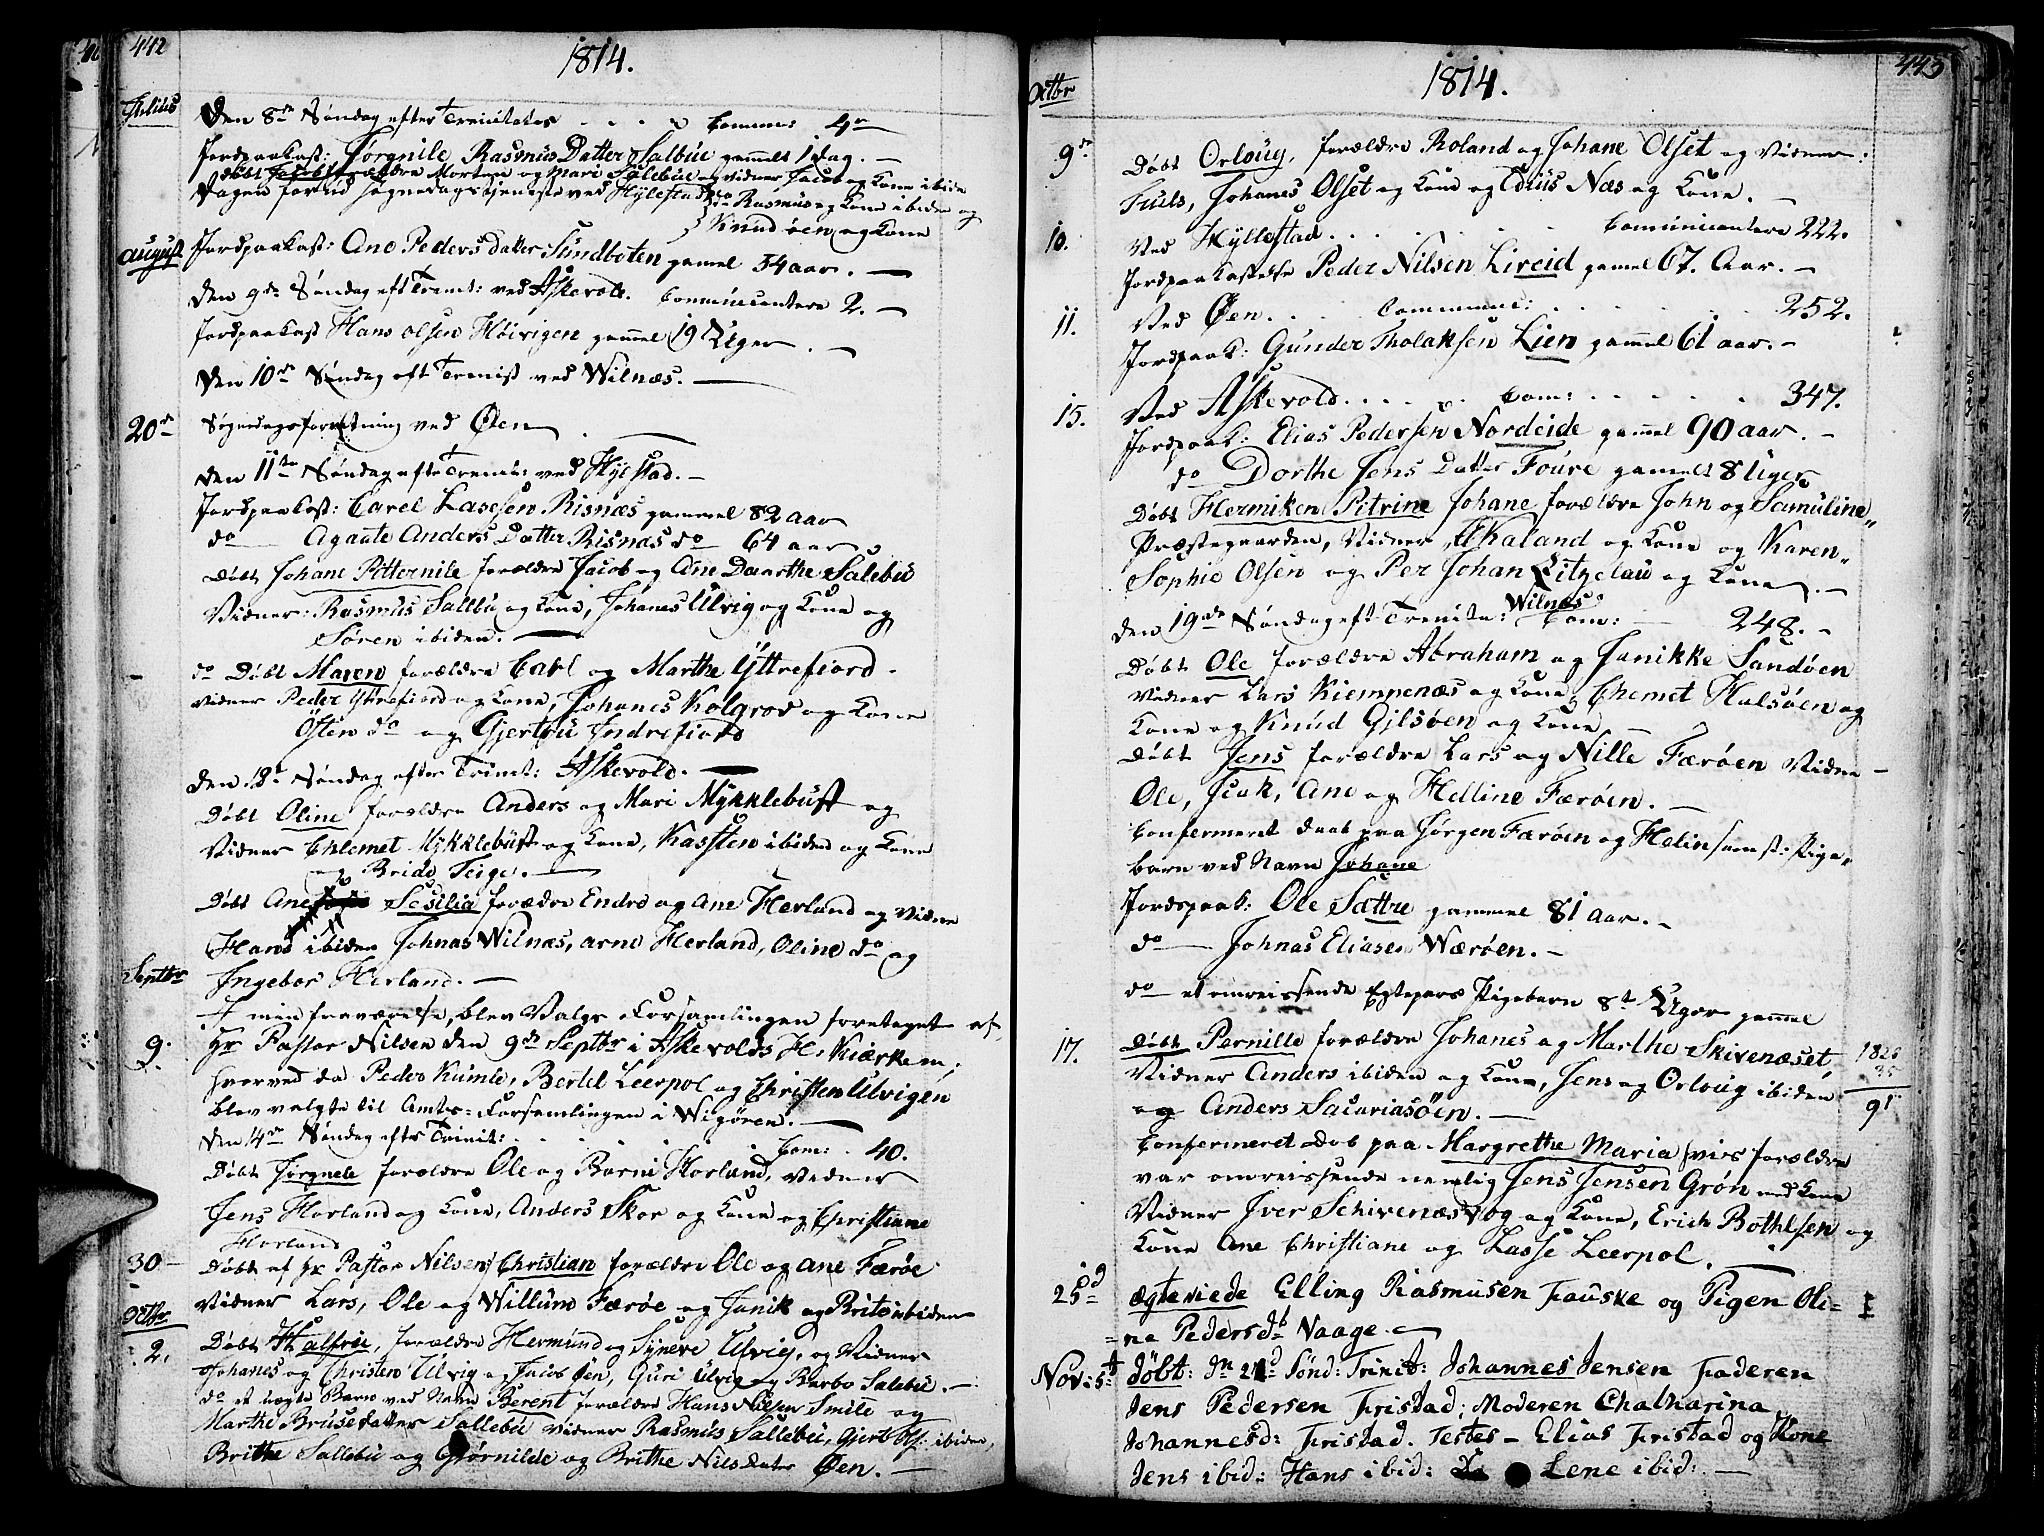 442
1814.
Julius
Den 8de Søndag efter Trenitates . . . . Comm: 4re
Jordpaakast: Jørgnile Rasmus Datter Salbue gammel 1 dag. —
døbt Jacob forældre Morten og Mari Salebue og Vidner Jacob og Kone ibide
Dagen forud søgnedagstjeneste ved Hyllestad do Rasmus og Kone ibiden og
Knud øen og Kone
August
Jordpaakast: Ane Peders Datter Sundboten gamel 54 aar. —
den 9de Søndag eft Trenit: ved Askevold. Communicantere 2. —
Jordpaakast Hans Olsen Høivigen gammel 19 Uger. —
Den 10de Søndag eft Trenist ved Wilnæs. —
20de
Søgnedagsforretning ved Øen —
den 11te Søndag efter Trenit: ved Hylestad. —
Jordpaakast: Carel Lassesen Risnæs gammel 82 aar
do — Agaate Anders Datter Risnæs do 64 aar
døbt Johane Pitternile forældre Jacob og Ane Daarthe Salebu
Vidner: Rasmus Sallbu og Kone, Johanes Ulvig og Kone og
Søren ibiden. —
do Døbt Maren forældre Carl og Marthe Yttrefiord.
vidner Peder Yttrefiord og Kone, Johanes Kolgrov og Kone
Östen do og Gjertrú Indrefiord
den 12te Søndag efter Trinit: Askevold. —
Døbt Oline forældre Anders og Mari Mykklebust og
Vidner Chlemet Mykklebust og Kone, Kassten ibiden og Kone
og Bride Teige. —
Døbt Ane Sesilia forældre Endre og Ane Herland og Vidne
Hans ibiden Johnas Wilnæs, arne Herland, Oline do og
Septbr
Ingebor Herland. —
I min fraværelse, blev Valgs Forsamlingen foretaget af
9.
Hr Pastor Nilsen den 9de Septbr i Askevolds H. Kiærke m.
hvorved da Peder Kumle, Bertel Leerpol og Christen Ulvigen
blev valgte til Amts-Forsamlingen i Wigøren. —
den 14de Søndag efter Trinit: . . . . Com: . 40.
Døbt Jørgnele forældre Ole og Barni Horland, Vedner
Jens Horland og Kone, Anders Skor og Kone og Christiane
Horland
30
Døbt af Hr Pastor Nilsen Christian forældre Ole og Ane Færøe
Vidner Lars, Ole og Willum Færøe og Janik og Brite ibiden
Octbr
2.
Døbt Halfrie, forældre Hermund og Syneve Ulvig, og Vidner
Johanes og Christen Ulvig og Jacob Øen, Guri Ulvig og Barbo Salebu. —
do et uægte Barn ved Navn Berent forældre Hans Nilsen Smile og
Marthe Brusedatter Sallebu Vidner Rasmus Sallebu, Gjert Ols: ibiden,
Brithe Sallebu og Giørnilde og Brithe Nilsdater Øen. —
443
1814.
Octbr
9de
Døbt Orloug, forældre Roland og Johane Olset og Vidner:
Johanes Olset og Kone og Næs og Kone. —
10.
Ved Hyllestad. . . . . . Comunicantere 222.
Jordpaakastelse Peder Nilsen Lireid gamel 67. Aar. —
11.
Ved Øen. . . . Communi: . . . . 252.
Jordpaak: Gunder Tholaksen Lien gammel 61 aar. —
15.
Ved Askevold. . . . . Com: . . . . . 347.
Jordpaak: Elias Pedersen Nordeide gammel 90 aar. —
do Dorthe Jens Datter Foure gamel 8 Uger
Døbt Hermiken Pitrine Johane forældre John og Samuline
Præstegaarden, Vidner, Ahaland og Kone og Karen
Sophie Olsen og Per Johan Litzelau og Kone. —
den 19de Søndag eft Trenita: Wilnæs Com: — 248. —
Døbt Ole forældre Abraham og Janikke Sandøen
vidner Lars Kiempenæs og Kone, Chemet Halsøen og
Kone og Knud Gjilsøen og Kone
Døbt Jens forældre Lars og Nille Færøen Vidne —
Ole, Isak, Ane og Helline Færøen. —
Confermeret daab paa Jørgen Færøen og Helin samst: Pige
barn ved Navn Johane
Jordspaak: Ole Sættre gammel 81 aar. —
do — Johnas Eliasen Wærøen. —
do — et omreissende Egtepars Pigebarn 8t Uger gammel
17.
Døbt Pernille forældre Johanes og Marthe Skivenæset
Vidner Anders ibiden og Kone, Jens og Orloug ibiden
og Anders Sacariasøen. —
1826
35
91
Confermeret Dob paa Margrethe Maria hvis forældre
var omreissende nemlig Jens Jensen Grøn med Kone
Vidner Iver Schivenæsvog og Kone, Erich Bothlsen og
Kone Ane Christiane og Lasse Leerpol.
25de
ægteviede Elling Rasmusen Fauske og Pigen Oli-
-ne Pedersdt Vaage. —
Nov: 5te
døbt: dn 21d Sönd: Trinit: Johannes Jensen Faderen
Jens Pedersen Fristad; Moderen Chatharina
Johannesd: Fristad. Testes — Elias Fristad og Kone
Jens ibid: Hans ibid: Lene ibid: —